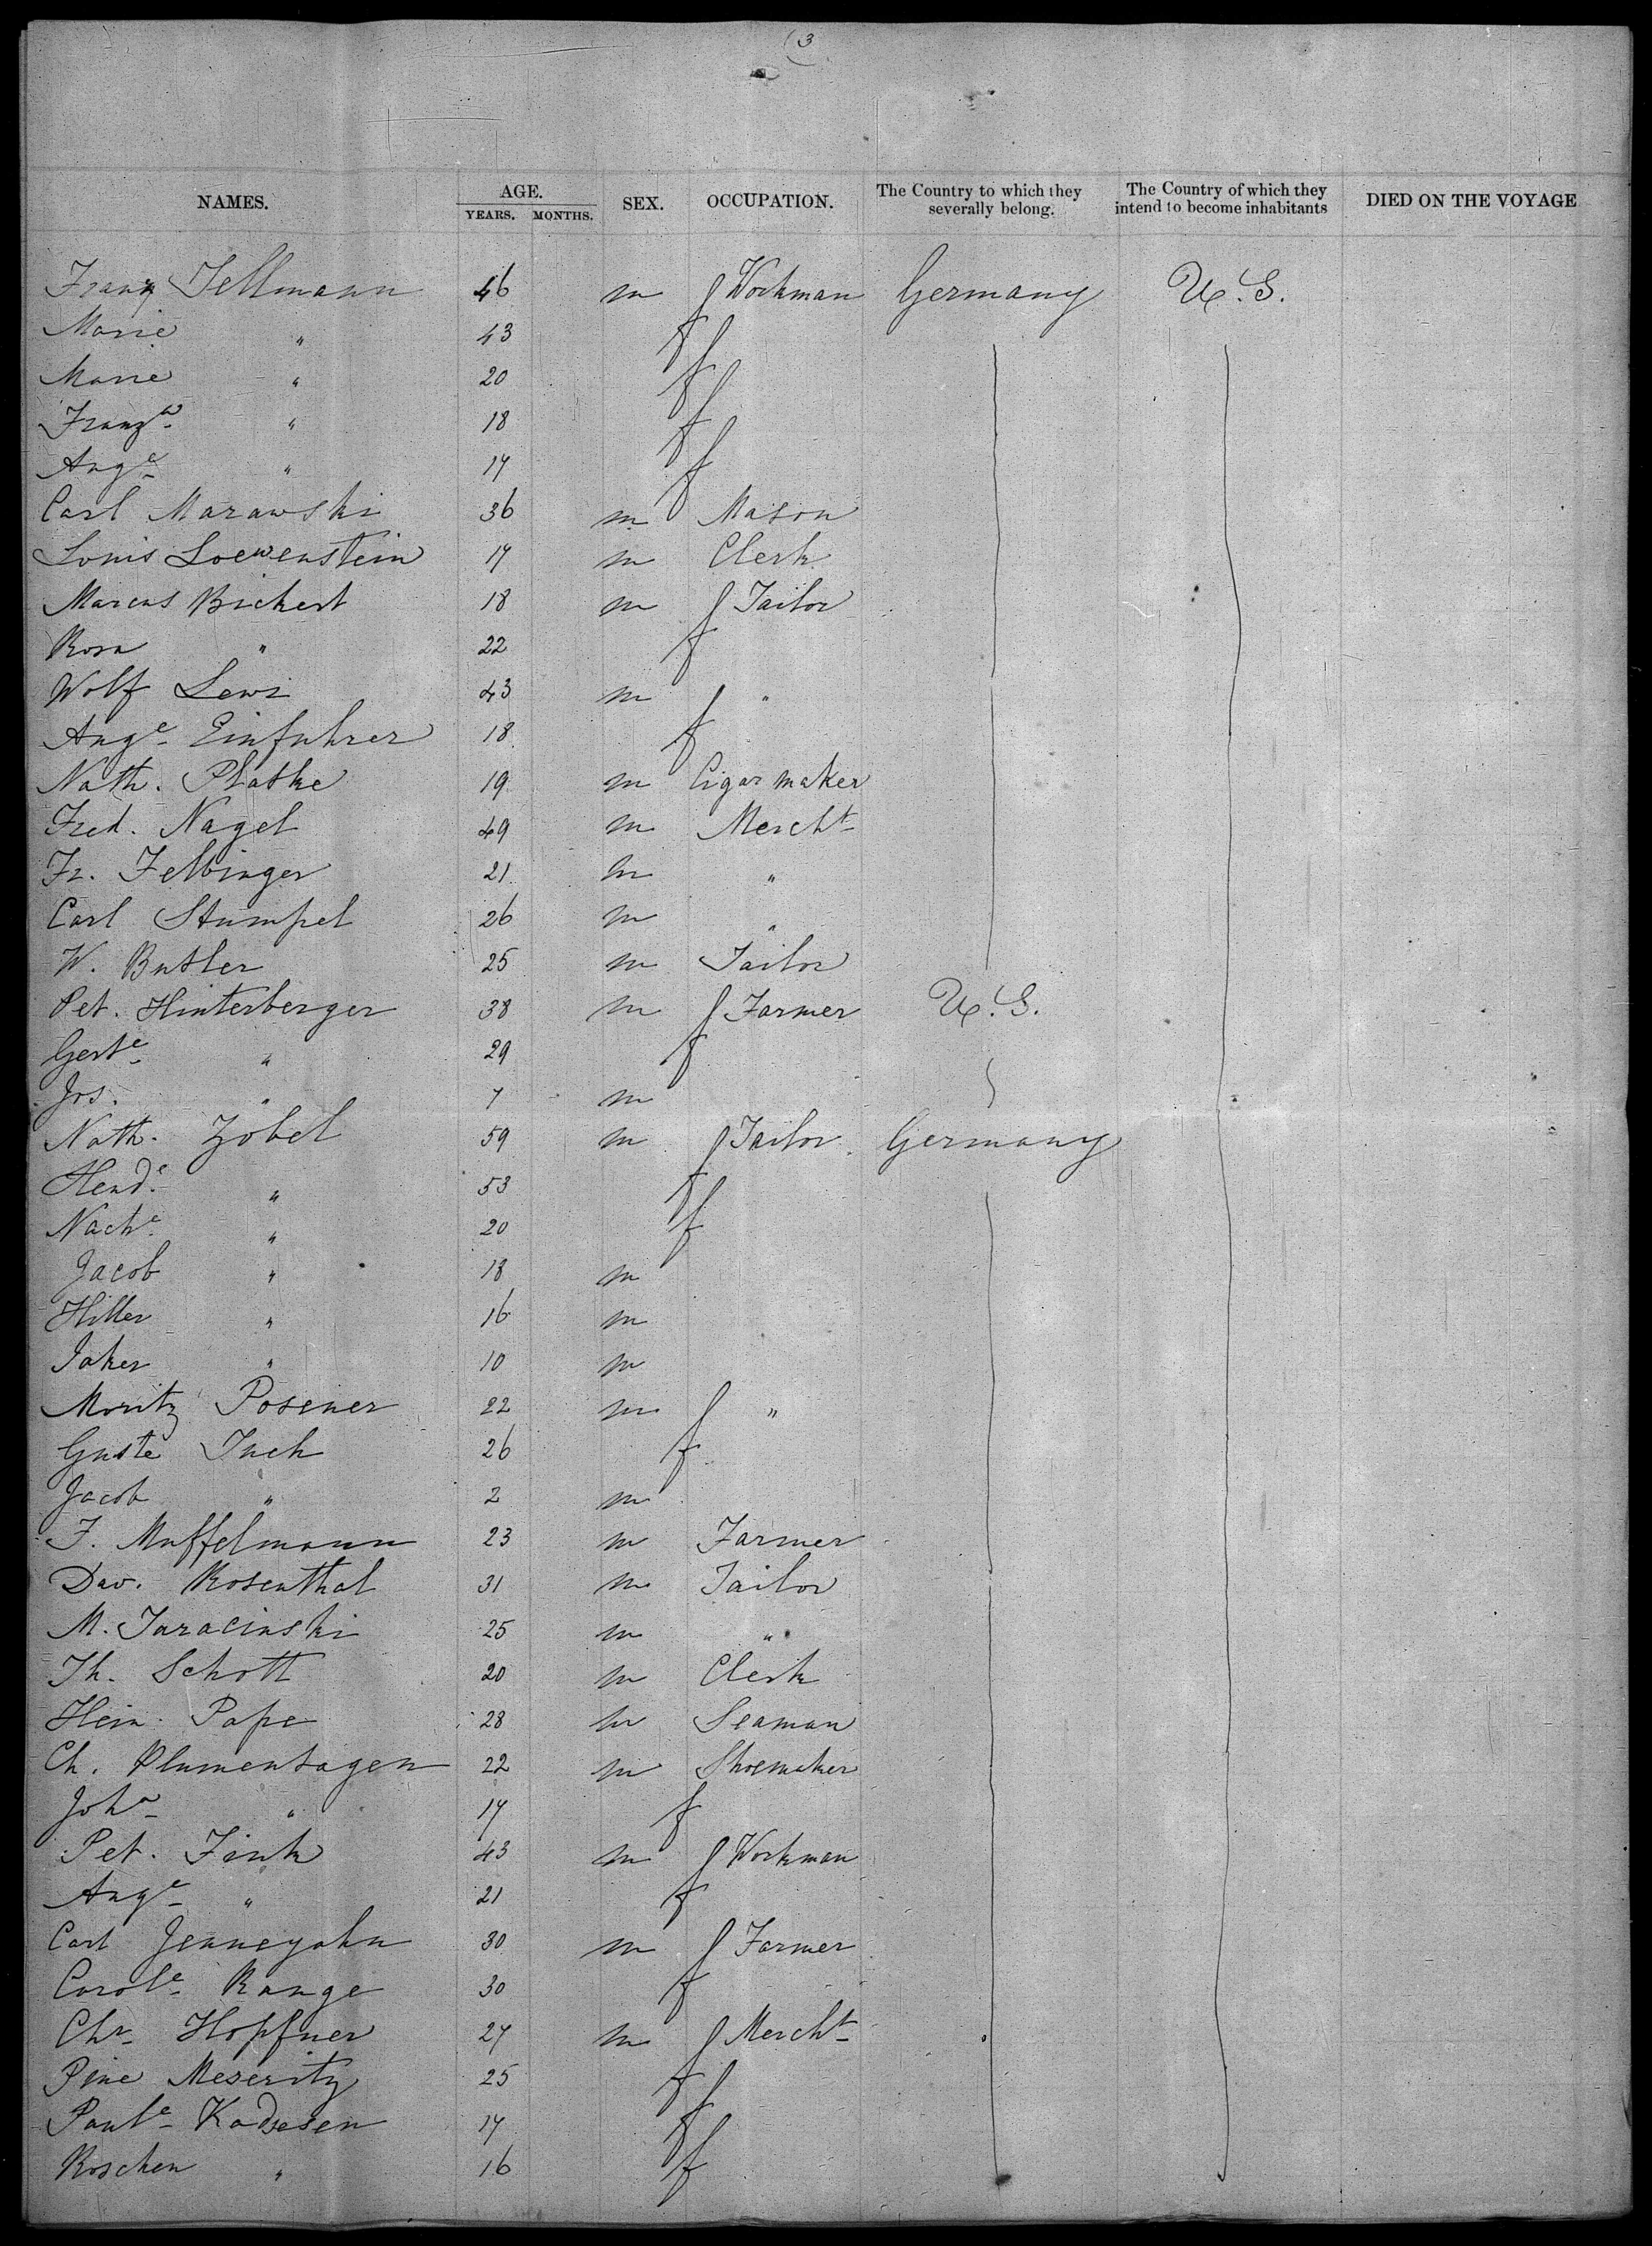 (3
NAMES. AGE. YEARS. MONTHS. SEX. OCCUPATION. The Country to which they severally belong. The Country of which they intend to become inhabitants DIED ON THE VOYAGE
Franz Tellmann 46 m Workman Germany U.S.
Marie " 43 f
Marie " 20 f
Franza " 18 f
Auge " 17 f
Carl Marawski 36 m Mason
Louis Loewenstein 17 m Clerk
Marcus Bickert 18 m Tailor
Rosa " 22 f
Wolf Lewi 43 m "
Auge Einfuhrer 18 f
Nath. Platke 19 m Cigar maker
Fred. Nagel 49 m Mercht
Fr. Felbinger 21 m "
Carl Stumpel 26 m "
W. Butler 25 m Tailor
Pet. Hinterberger 38 m Farmer U.S.
Gerte " 29 f
Jos. " 7 m
Nath. Zobel 59 m Tailor Germany
Hende " 53 f
Nache " 20 f
Jacob " 18 m
Hiller " 16 m
Joker " 10 m
Moritz Posener 22 m "
Guste Tuch 26 f
Jacob " 2 m
F. Muffelmann 23 m Farmer
Dav. Rosenthal 31 m Tailor
M. Jaracinski 25 m "
Th. Schott 20 m Clerk
Hein. Pape 28 m Seaman
Ch. Plumenhagen 22 m Shoemaker
Joha " 17 f
Pet. Fink 43 m Workman
Auge " 21 f
Carl Jennejohn 30 m Farmer
Carole Range 30 f
Chr. Hopfner 27 m Mercht
Pine Meseritz 25 f
Paule Kadsesen 17 f
Roschen " 16 f